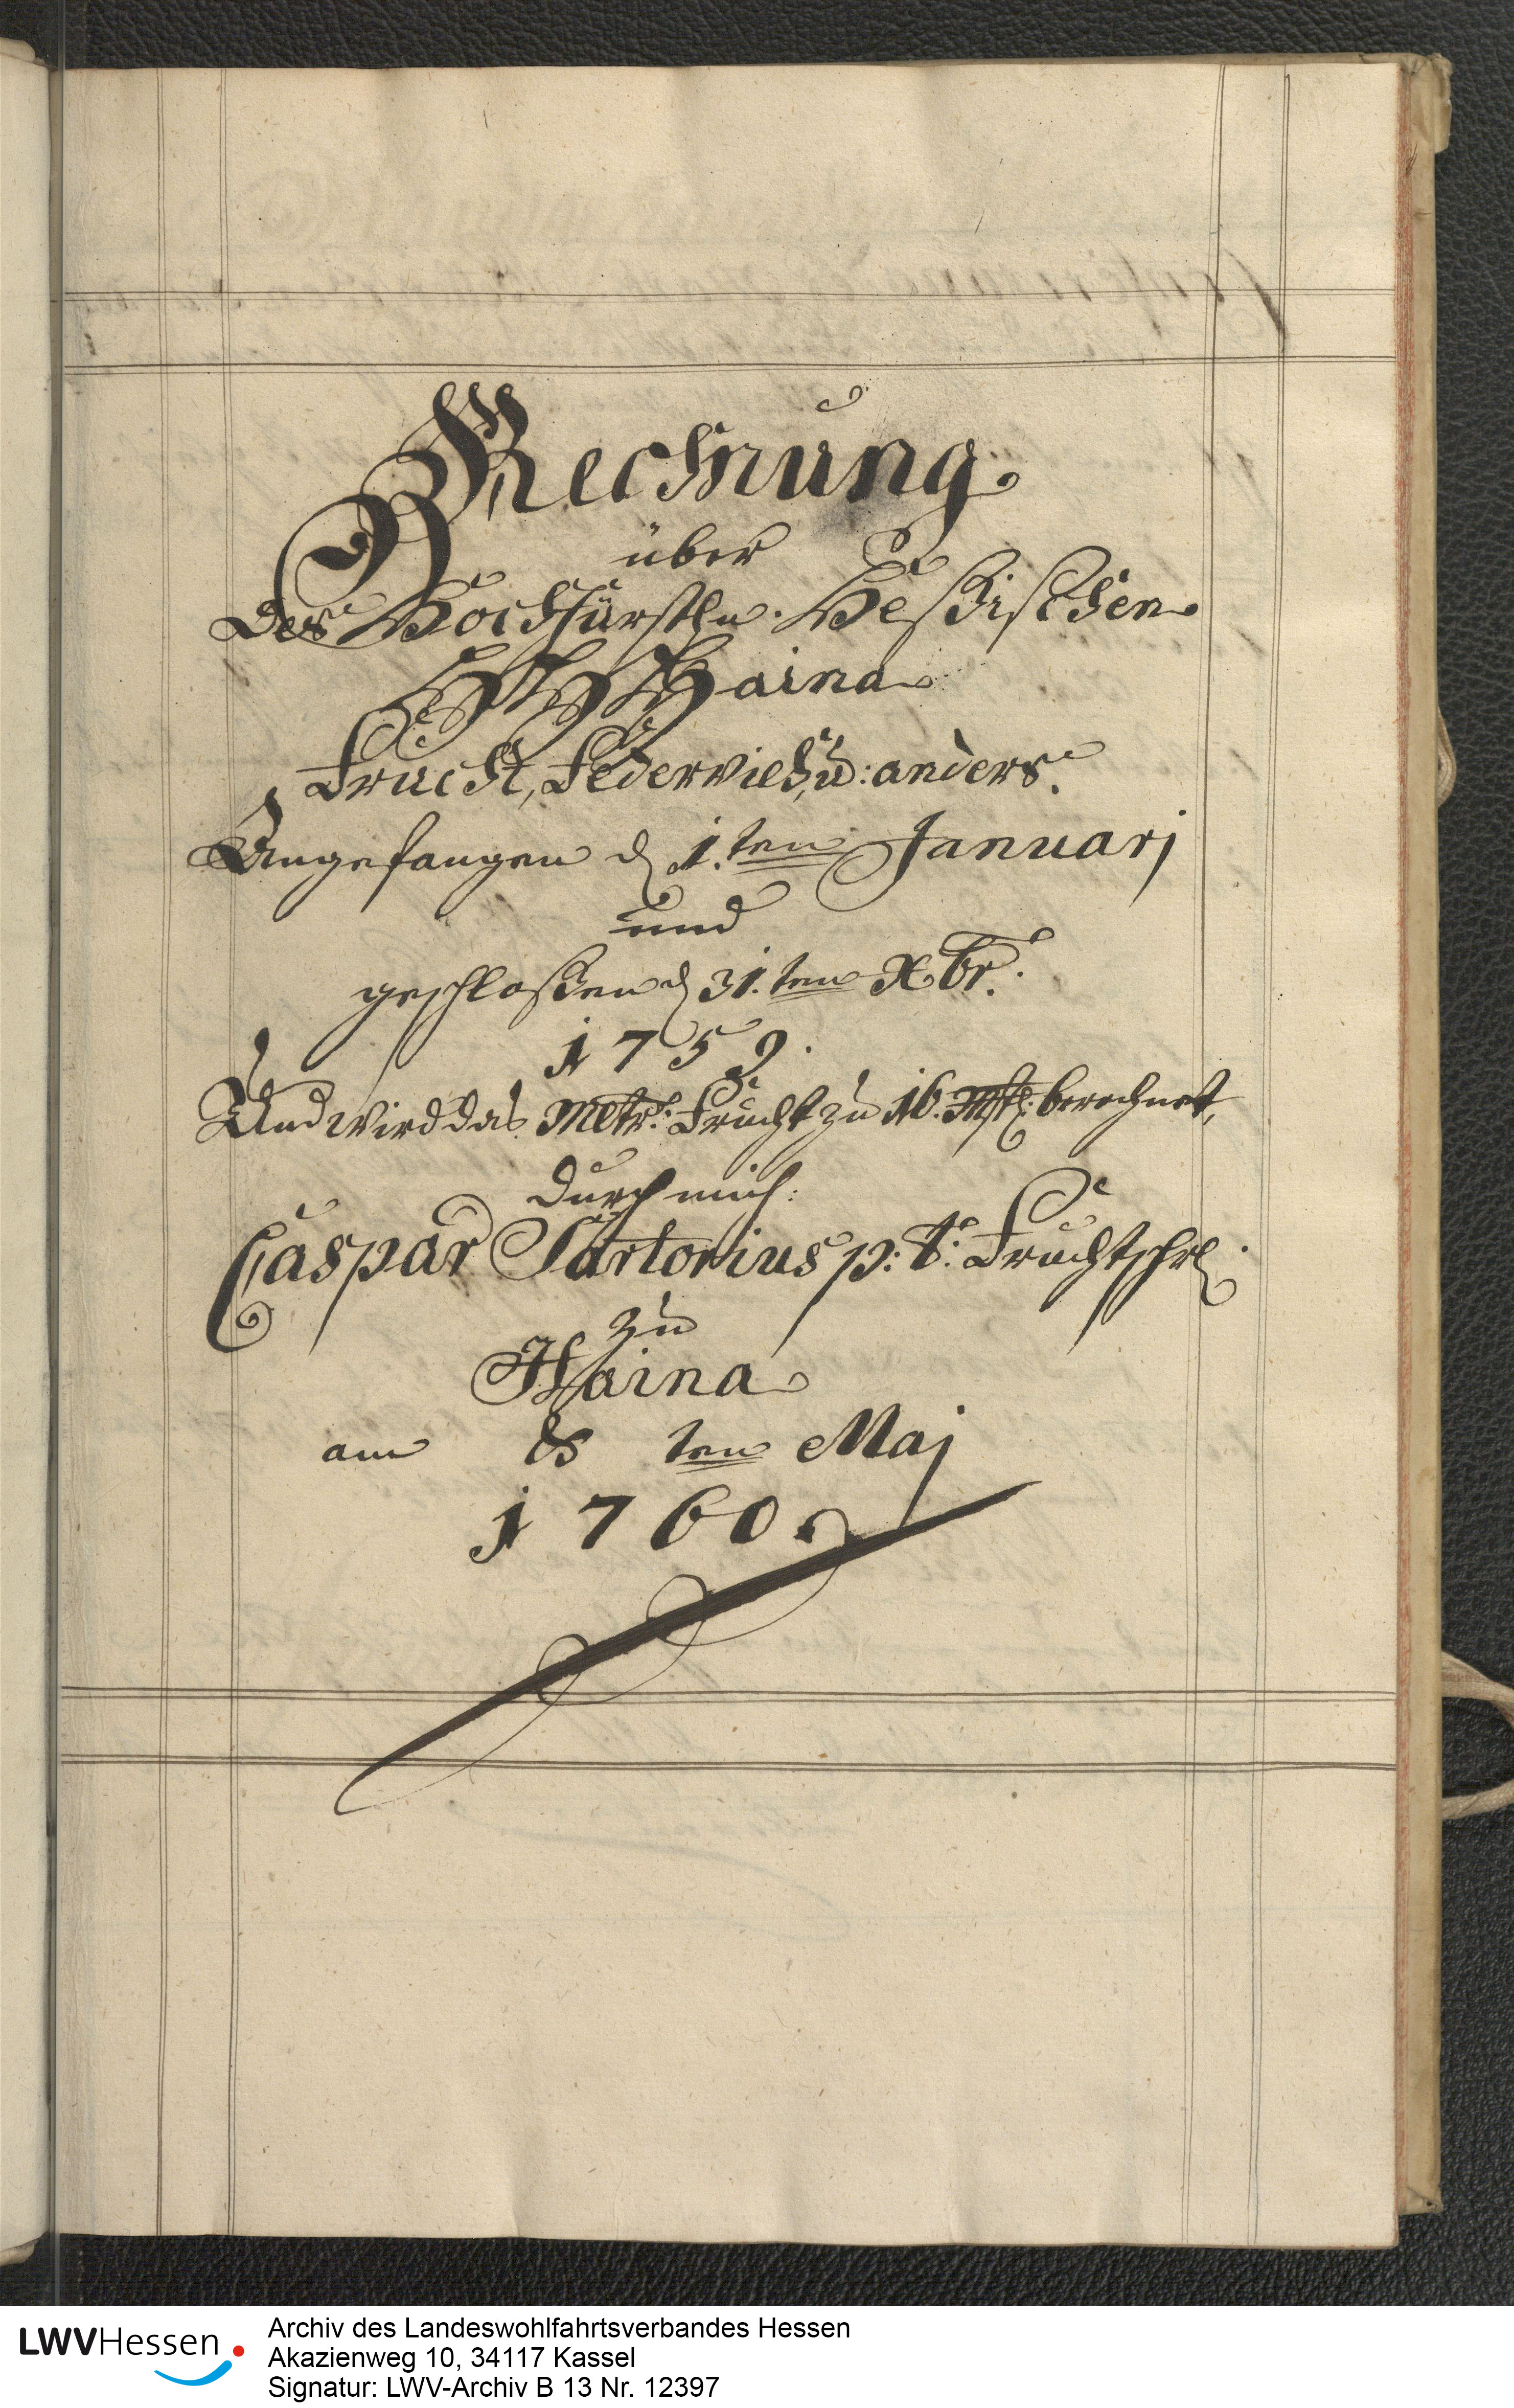 Rechnung
über
des Hochfürstln. Heßischen
Haina
Frucht, Federvieh, u: anders.
Angefangen d 1.ten Januarj
und
geschloßen d 31.ten Xbr.
1759.
Und wird das Mltr. Frucht zu 16. Mst: berechnet,
durch mich:
Caspar Sartorius p: t: Fruchtschr.
zu
Haina
am 8 ten Maj
1760.
LWVHessen
Archiv des Landeswohlfahrtsverbandes Hessen
Akazienweg 10, 34117 Kassel
Signatur: LWV-Archiv B 13 Nr. 12397